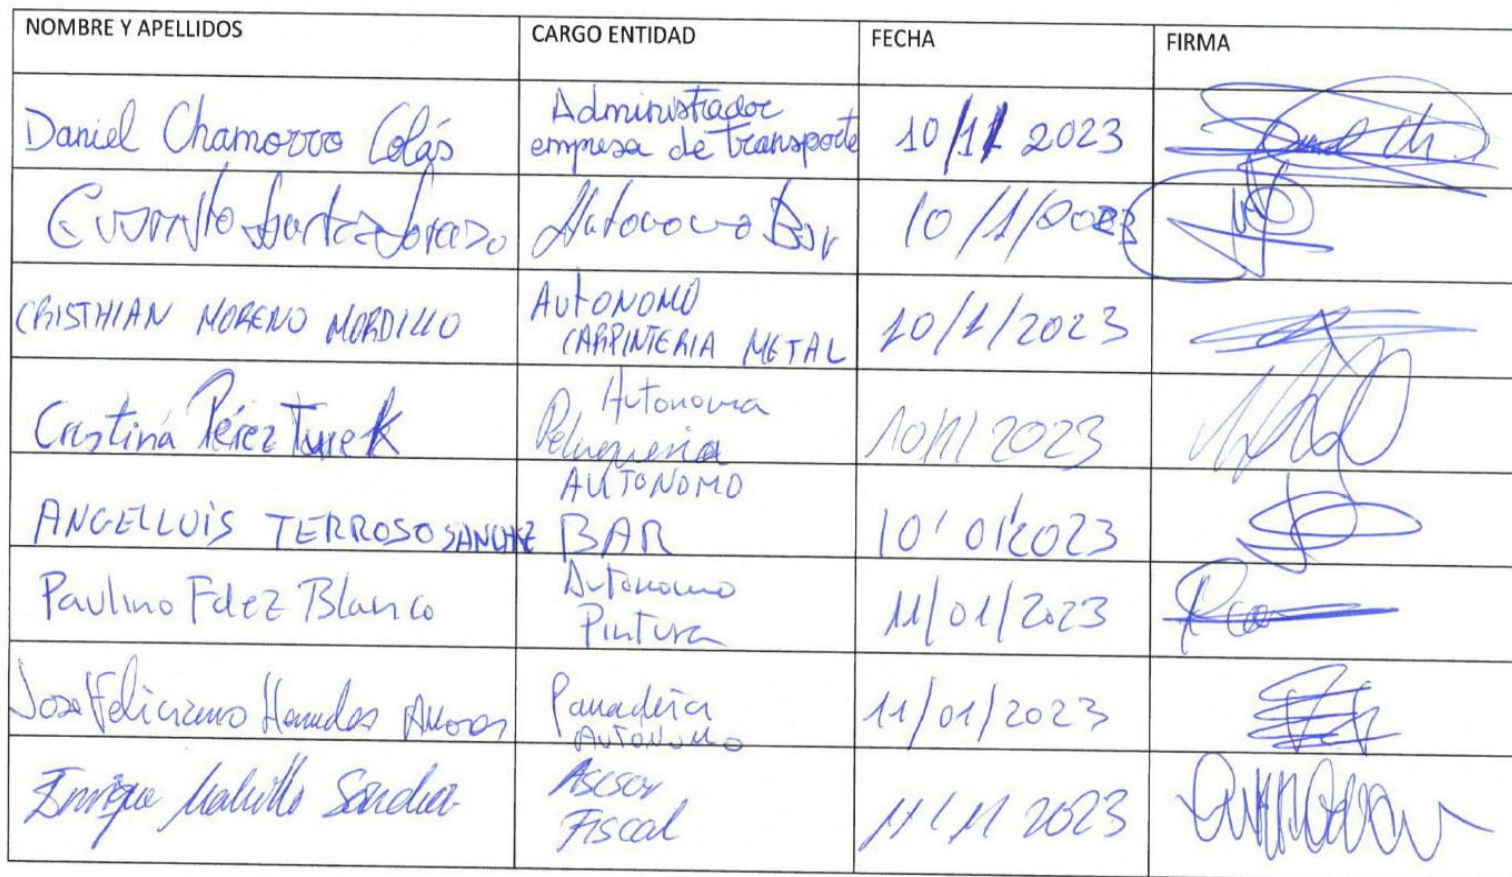 NOMBRE Y APELLIDOS CARGO ENTIDAD FECHA FIRMA
Daniel Chamorro Colás Administrador empresa de transporte 10/11 2023
Autonomo Bar 10/1/2023
CRISTHIAN MORENO MORDILLO AUTONOMO CARPINTERIA METAL 10/1/2023
Cristina Pérez Turek Autonoma Peluqueria 10/1/2023
ANGEL LUIS TERROSO SANCHEZ AUTONOMO BAR 10/01/2023
Paulino Fdez Blanco Autonomo Pintura 11/01/2023
Jose Feliciano Panaderia AUTONOMO 11/01/2023
Enrique Sanchez Asesor Fiscal 2023